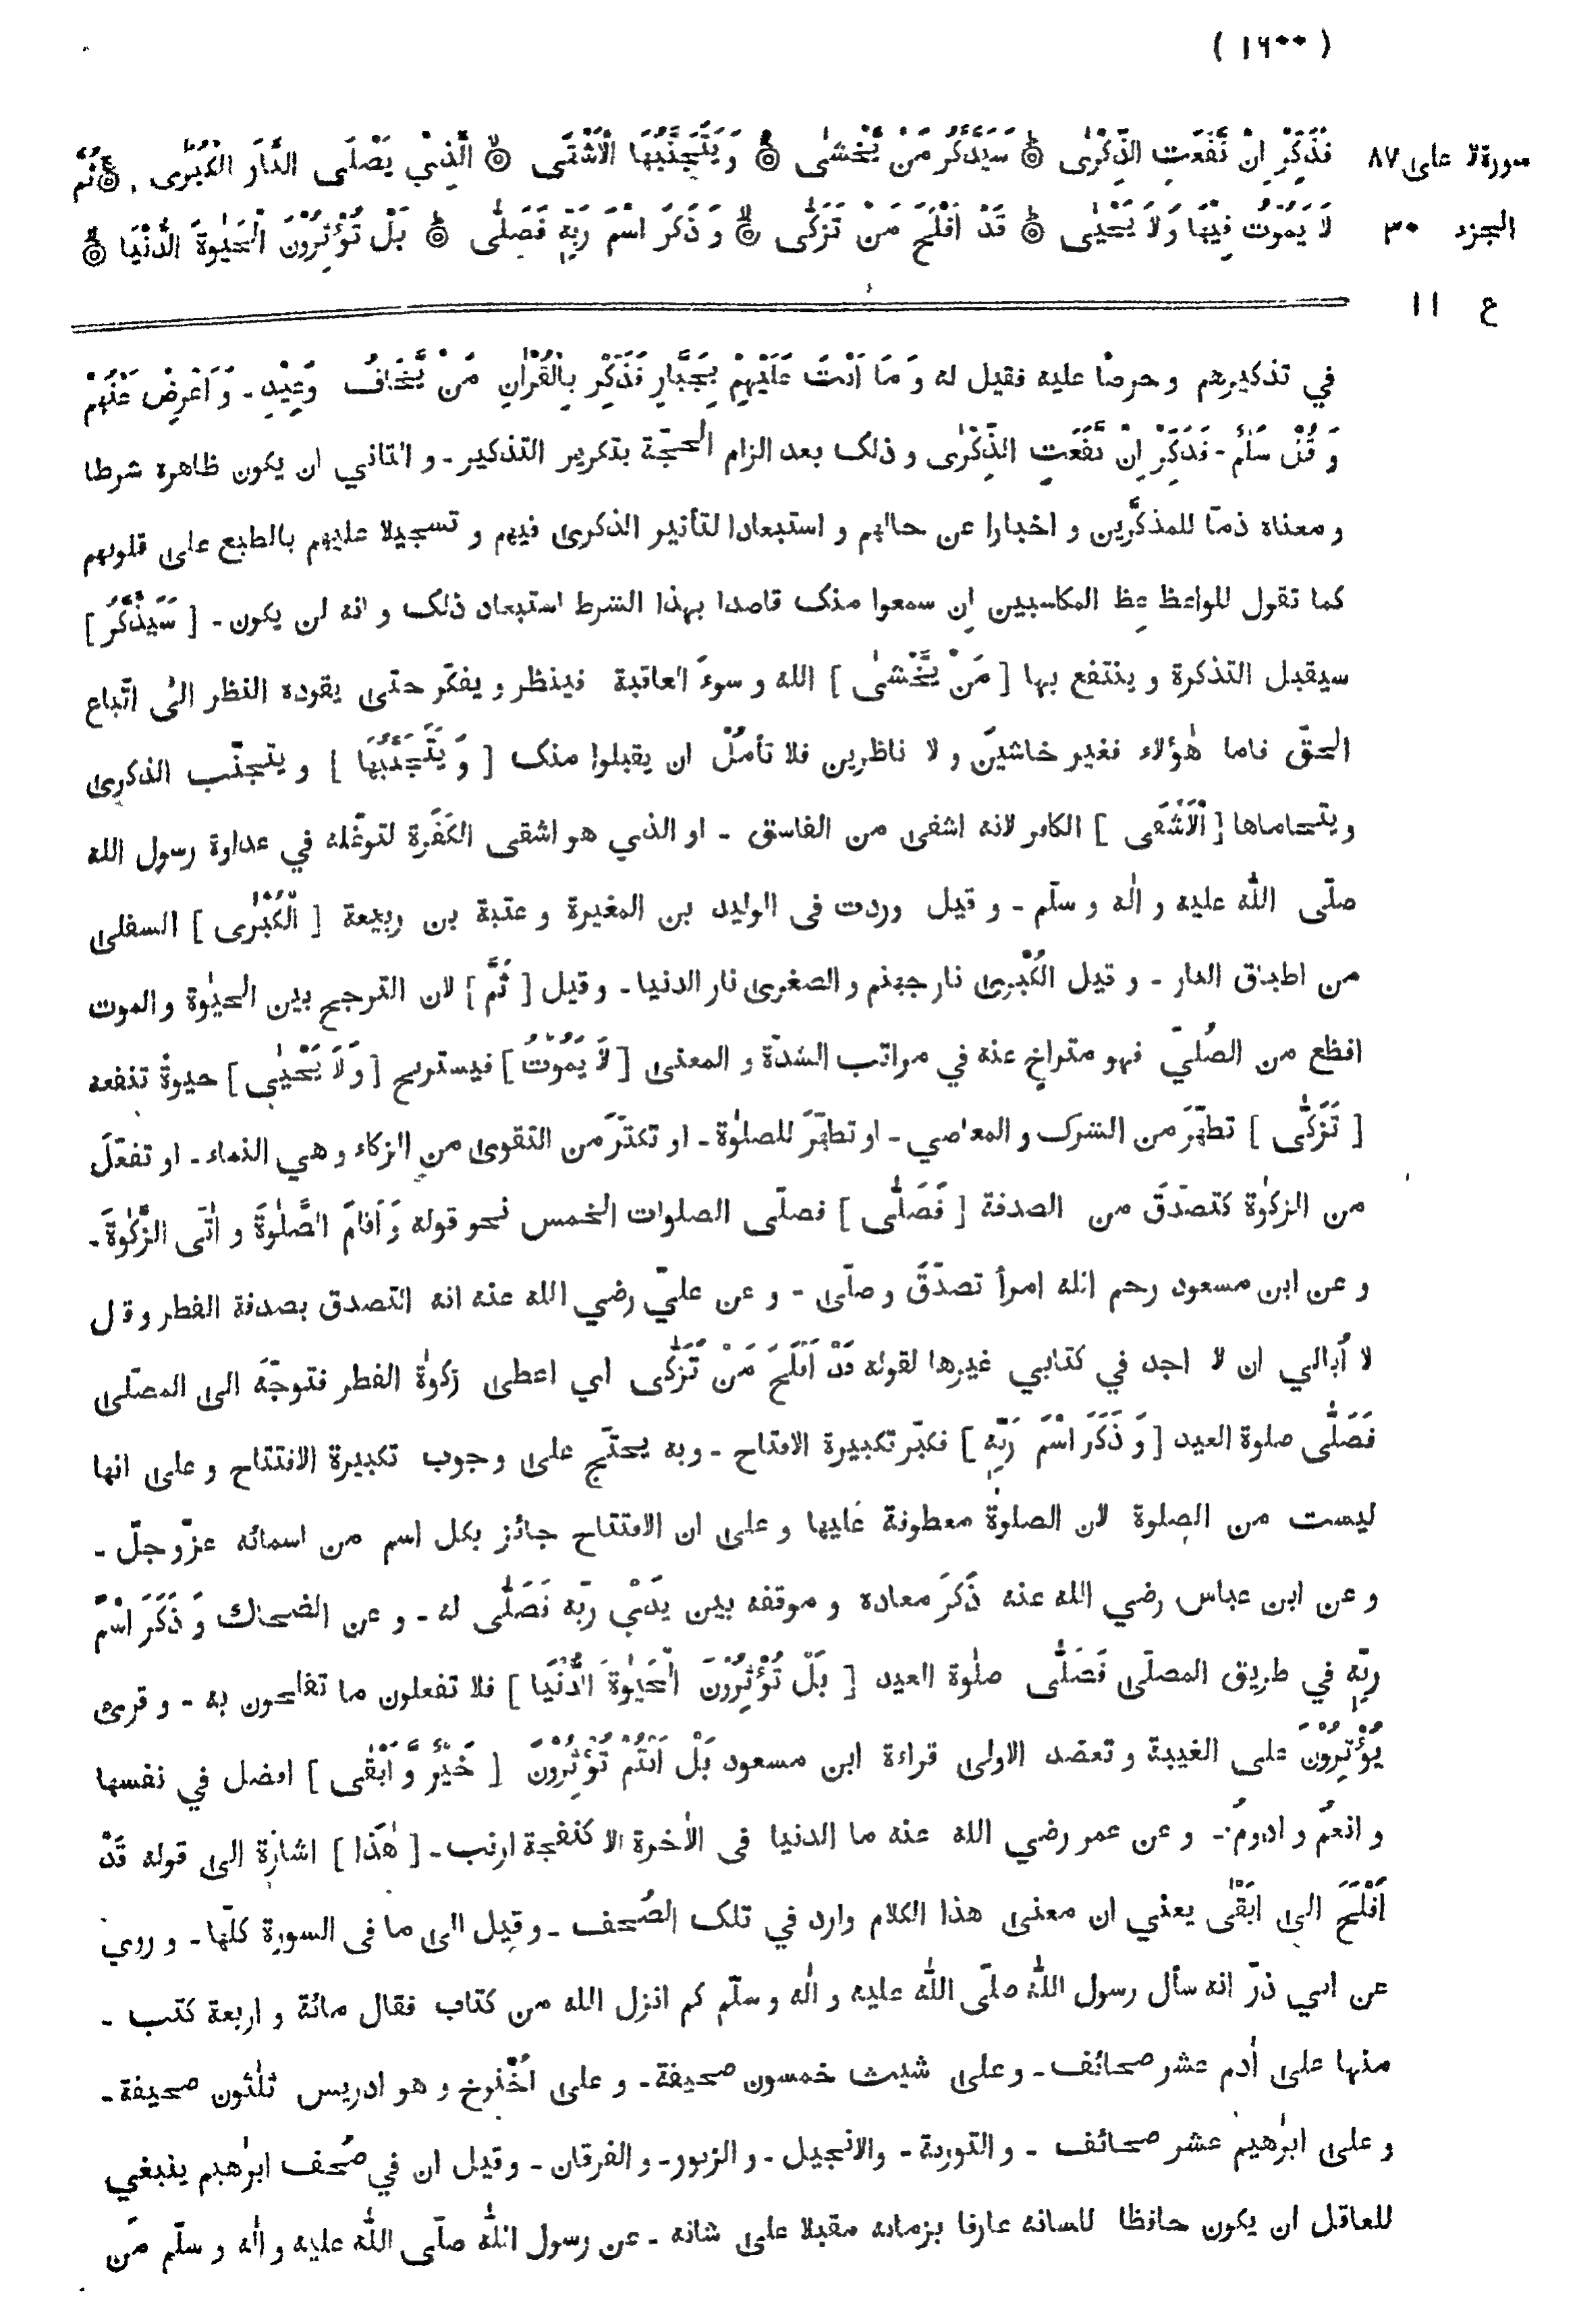 ( ١٦٠٠ )
سورة لا على ٨٧
فَذَكِّرْ اِنْ نَّفَعَتِ الذِّكْرٰى ۞ سَيَذَّكَّرُ مَنْ يَّخْشٰى ۞ وَ يَتَجَنَّبُهَا الْاَشْقَى ۞ الَّذِيْ يَصْلَى النَّارَ الْكُبْرٰى ۞ ثُمَّ
الجزء ٣٠
لَا يَمُوْتُ فِيْهَا وَ لَا يَحْيٰى ۞ قَدْ اَفْلَحَ مَنْ تَزَكّٰى ۞ وَ ذَكَرَ اسْمَ رَبِّهٖ فَصَلّٰى ۞ بَلْ تُؤْثِرُوْنَ الْحَيٰوةَ الدُّنْيَا ۞
ع ١١
في تذكيرهم و حرصًا عليه فقيل له وَ مَا اَنْتَ عَلَيْهِمْ بِجَبَّارٍ فَذَكِّرْ بِالْقُرْاٰنِ مَنْ يَّخَافُ وَعِيْدِ - وَ اَعْرِضْ عَنْهُمْ
وَ قُلْ سَلٰمٌ - فَذَكِّرْ اِنْ نَّفَعَتِ الذِّكْرٰى و ذلك بعد الزام الحجّة بتكرير التذكير - و الثاني ان يكون ظاهره شرطا
و معناه ذمّا للمذكَّرين و اخبارا عن حالهم و استبعادا لتأثير الذكرى فيهم و تسجيلا عليهم بالطبع على قلوبهم
كما تقول للواعظ عِظ المكاسبين اِن سمعوا منك قاصدا بهذا الشرط استبعاد ذلك و انه لن يكون - [ سَيَذَّكَّرُ ]
سيقبل التذكرة و ينتفع بها [ مَنْ يَّخْشٰى ] الله و سوءَ العاقبة فينظر و يفكّر حتى يقوده النظر الى اتّباع
الحقّ فاما هٰؤلاء فغير خاشينَ و لا ناظرين فلا تأملْ ان يقبلوا منك [ وَ يَتَجَنَّبُهَا ] و يتجنّب الذكرى
ويتحاماها [ الْاَشْقَى ] الكافر لانه اشقى من الفاسق - او الذي هو اشقى الكَفَرة لتوغّله في عداوة رسول الله
صلّى الله عليه و اٰله و سلّم - و قيل وردت فى الوليد بن المغيرة و عتبة بن ربيعة [ الْكُبْرٰى ] السفلى
من اطباق النار - و قيل الْكُبْرٰى نار جهنم و الصغرى نار الدنيا - و قيل [ ثُمَّ ] لان الترجح بين الحيٰوة و الموت
افظع من الصُليّ فهو متراخٍ عنه في مراتب الشدّة و المعنى [ لَا يَمُوْتُ ] فيستريح [ وَ لَا يَحْيٰى ] حيوةً تنفعه
[ تَزَكّٰى ] تطهّرَ من الشرك و المعاصي - او تطهّرَ للصلٰوة - او تكثّرَ من التقوى من الزكاء و هي النماء - او تفعّلَ
من الزكٰوة كتصدّقَ من الصدقة [ فَصَلّٰى ] فصلّى الصلوات الخمس نحو قوله وَ اَقَامَ الصَّلٰوةَ و اٰتَى الزَّكٰوةَ -
و عن ابن مسعود رحم الله امرأ تصدّقَ و صلّى - و عن عليّ رضي الله عنه انه التصدق بصدقة الفطر و قال
لا اُبالي ان لا اجد في كتابي غيرها لقوله قَدْ اَفْلَحَ مَنْ تَزَكّٰى اي اعطى زكوٰةَ الفطر فتوجّهَ الى المصلّى
فَصَلّٰى صلوة العيد [ وَ ذَكَرَ اسْمَ رَبِّهٖ ] فكبّر تكبيرة الافتتاح - وبه يحتَجّ على وجوب تكبيرة الافتتاح و على انها
ليست من الصلوة لان الصلوٰة معطوفة عَليها و على ان الافتتاح جائز بكل اسم من اسمائه عزّ وجلّ -
و عن ابن عباس رضي الله عنه ذَكرَ معاده و موقفه بين يدَيْ ربّه فَصَلّٰى له - و عن الضحاك وَ ذَكَرَ اسْمَ
ربِّهٖ في طريق المصلّى فَصَلّٰى صلٰوة العيد [ بَلْ تُؤْثِرُوْنَ الْحَيٰوةَ الدُّنْيَا ] فلا تفعلون ما تفلحون به - و قرئ
يُؤْثِرُوْنَ على الغيبة و تعضد الاولى قراءة ابن مسعود بَلْ اَنْتُمْ تُؤْثِرُوْنَ [ خَيْرٌ وَّ اَبْقٰى ] افضل في نفسها
و انعمُ و ادومُ - و عن عمر رضي الله عنه ما الدنيا فى الاٰخرة الا كنفجة ارنب - [ هٰذَا ] اشارة الى قوله قَدْ
اَفْلَحَ الى اَبْقٰى يعني ان معنى هذا الكلام وارد في تلك الصُحف - و قيل الى ما فى السورة كلّها - و روي
عن ابي ذرّ انه سأل رسول الله صلّى الله عليه و اٰله و سلّم كم انزل الله من كتاب فقال مائة و اربعة كتب -
منها على اٰدم عشر صحائف - و على شيث خمسون صحيفة - و على اَخْنوخ و هو ادريس ثلٰثون صحيفة -
و على ابرٰهيم عشر صحائف - و التورية - والانجيل - و الزبور - و الفرقان - و قيل ان في صُحف ابرٰهيم ينبغي
للعاقل ان يكون حافظا للسانه عارفا بزمانه مقبلا على شانه - عن رسول الله صلّى الله عليه و اٰله و سلّم مَن